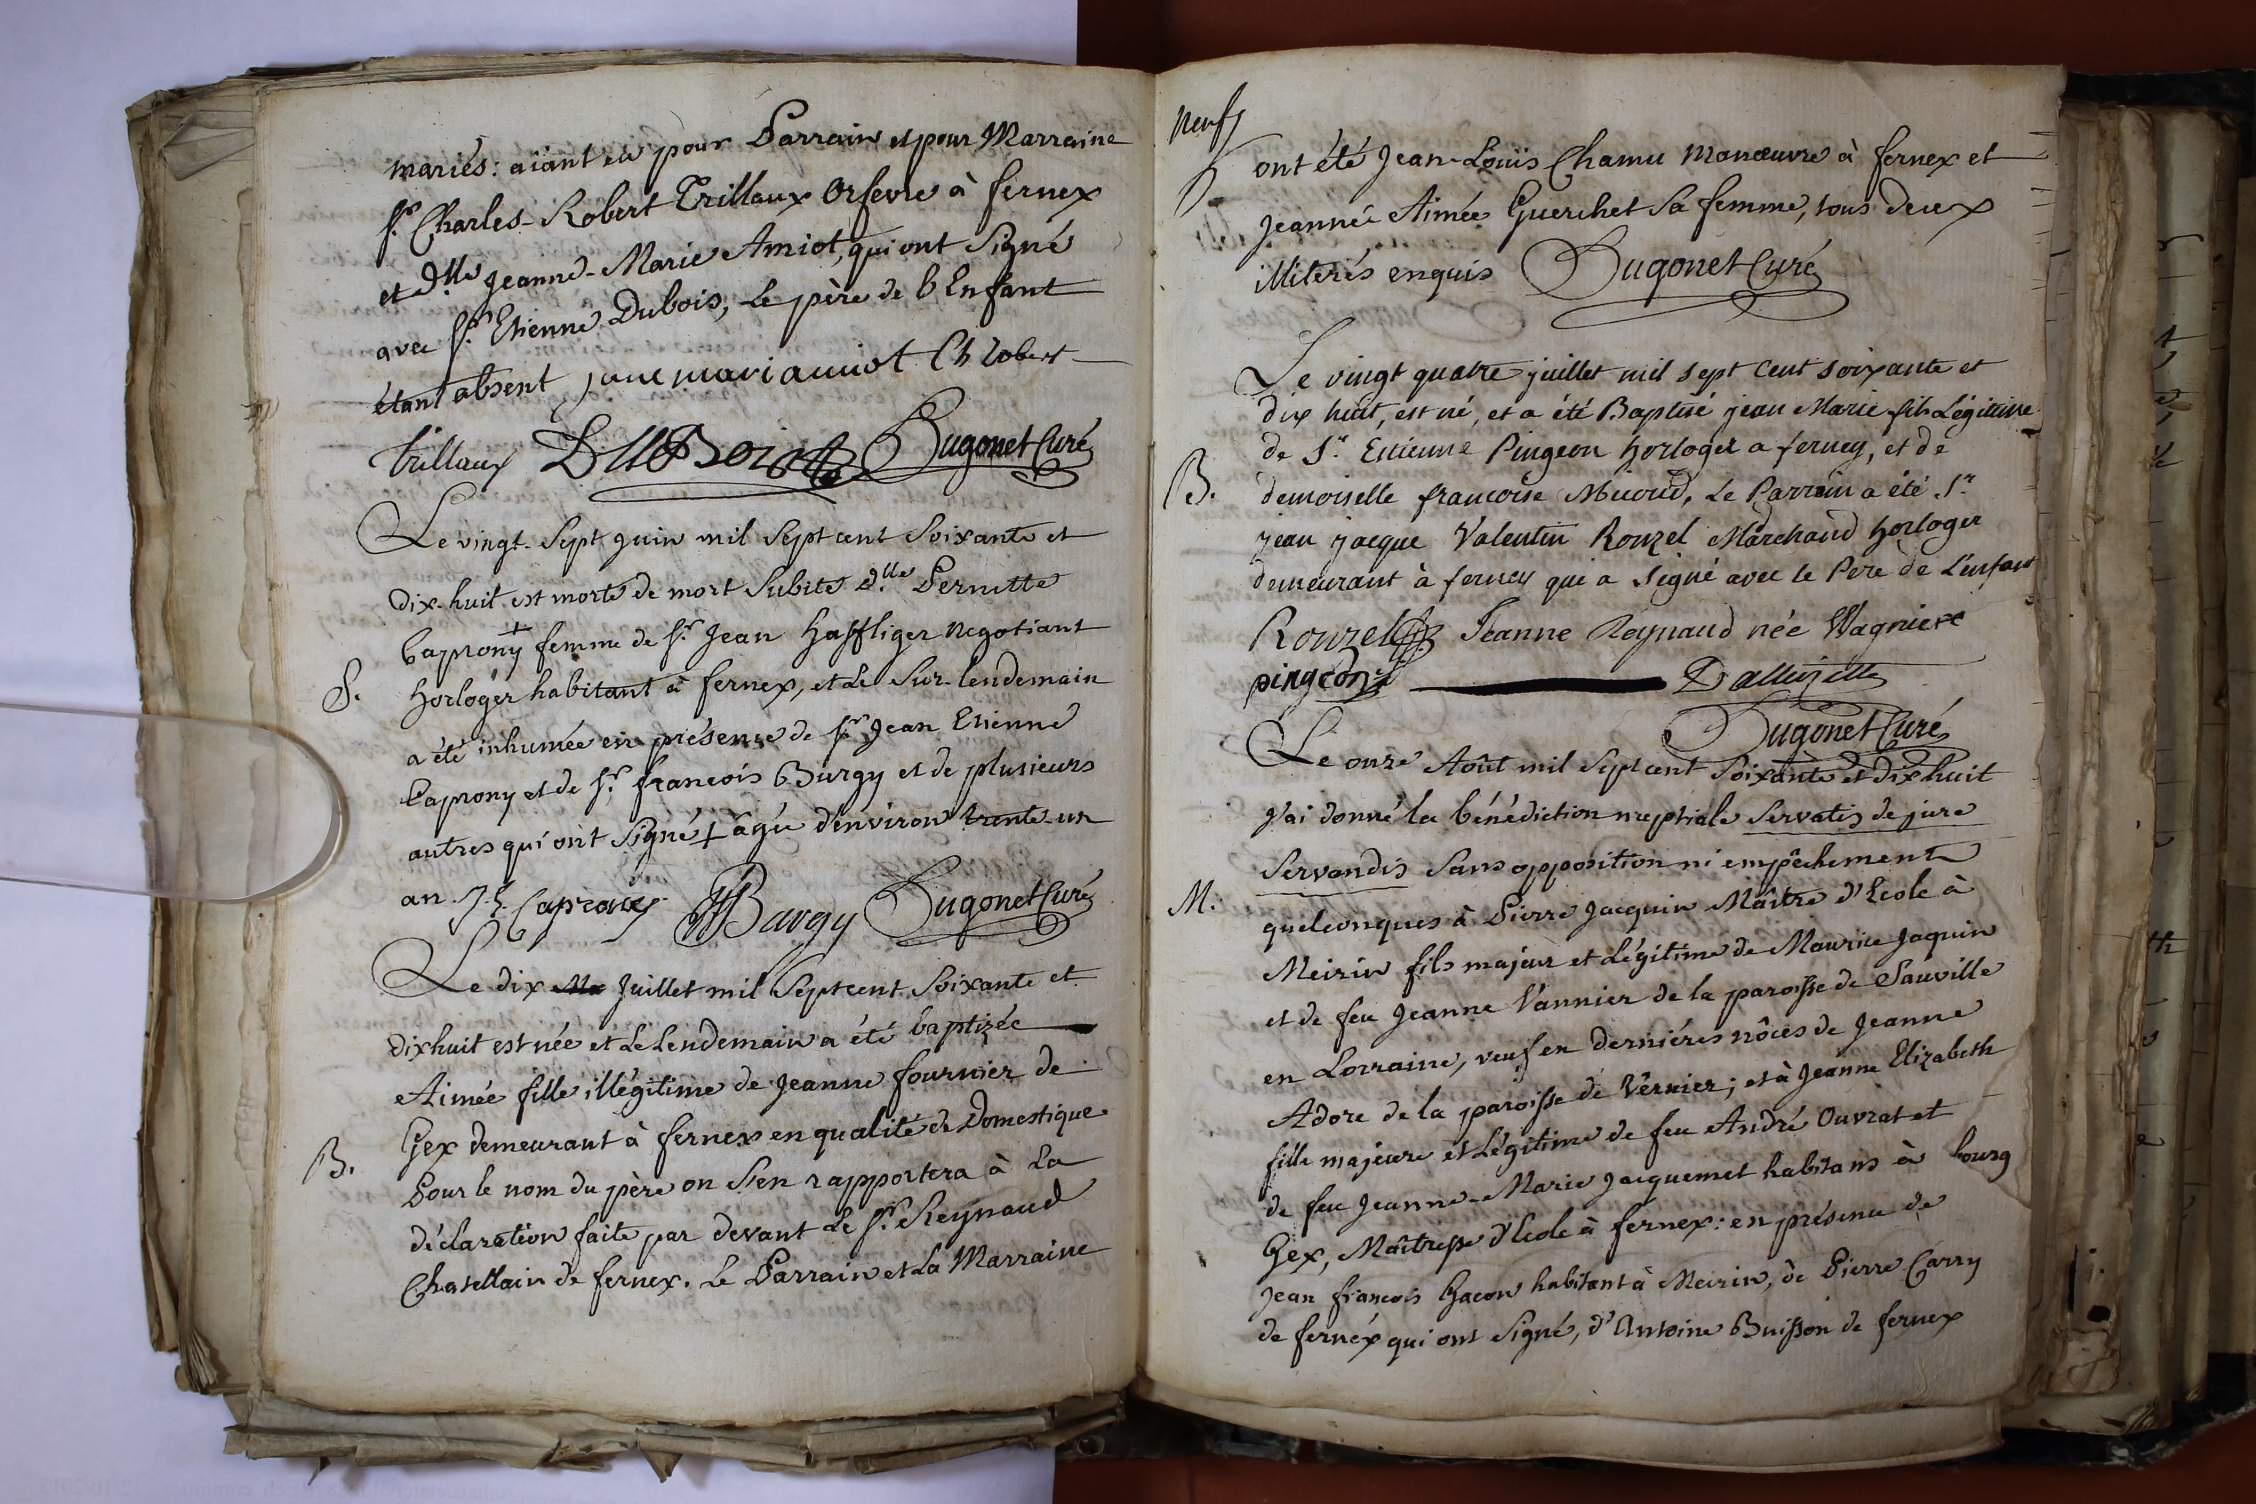 mariés: aiant eu pour Parrain et pour Marraine
Sr. Charles-Robert Trillaux Orfevre à fernex
et Dlle Jeanne-Marie Amiot, qui ont Signé
avec Sr. Etienne Dubois, Le père de l'Enfant
étant absent jane mari amiot Ch robert
trillaux DuBois Hugonet Curé
Le vingt-Sept Juin mil Sept cent Soixante et
dix-huit est morte de mort Subite Dlle Pernette
Caprony + femme de Sr. Jean Haffliger Negotiant
S.
Horloger habitant à fernex, et Le Sur-lendemain
a été inhumée en présence de Sr Jean Etienne
Caprony et de Sr. françois Burgy et de plusieurs
autres qui ont Signé + âgée d'environ trente-un
an J. E. Caprony Burgy Hugonet Curé
Le dix Juillet mil Sept cent Soixante et
dixhuit est née et Le Lendemain a été baptizée
Aimée fille illégitime de Jeanne fournier de
Gex demeurant à fernex en qualité de Domestique
B.
Pour le nom du père on S'en rapportera à La
déclaration faite par devant Le Sr. Reynaud
Chatellain de fernex. Le Parrain et La Marraine
neuf
ont été Jean-Louïs Chamu Manœuvre à fernex et
Jeanne Aimée Guerchet Sa femme, tous deux
illiterés enquis Hugonet Curé
Le vingt quatre juillet mil sept cent soixante et
dix huit, est né, et a été Baptisé jean Marie fils Légitime
de Sr. Etienne Pingeon horloger a ferney, et de
B.
demoiselle francoise Mucoud, Le Parrain a été Sr.
jean jacque Valentin Rouzel Marchand horloger
demeurant à ferney qui a signé avec le Pere de L'enfant
Rouzel Jeanne Reynaud née Wagniere
pingeon Dalleizette
Hugonet Curé
Le onze Août mil Sept cent Soixante et dixhuit
j'ai donné la bénédiction nuptiale Servatis de jure
Servandis Sans opposition ni empêchement
M.
quelconques à Pierre Jacquin Maître d'Ecole à
Meirin fils majeur et Légitime de Maurice Jaquin
et de feu Jeanne Vannier de la paroisse de Sauville
en Lorraine, veuf en derniéres nôces de Jeanne
Adore de la paroisse de Vernier; et à Jeanne Elizabeth
fille majeure et Légitime de feu André Ouvrat et
de feu Jeanne-Marie Jacquemet habitans à bourg
Gex, Maîtresse d'Ecole à fernex: en présence de
Jean françois Gacon habitant à Meirin, de Pierre Carry
de fernéx qui ont Signé, d'Antoine Buisson de fernex